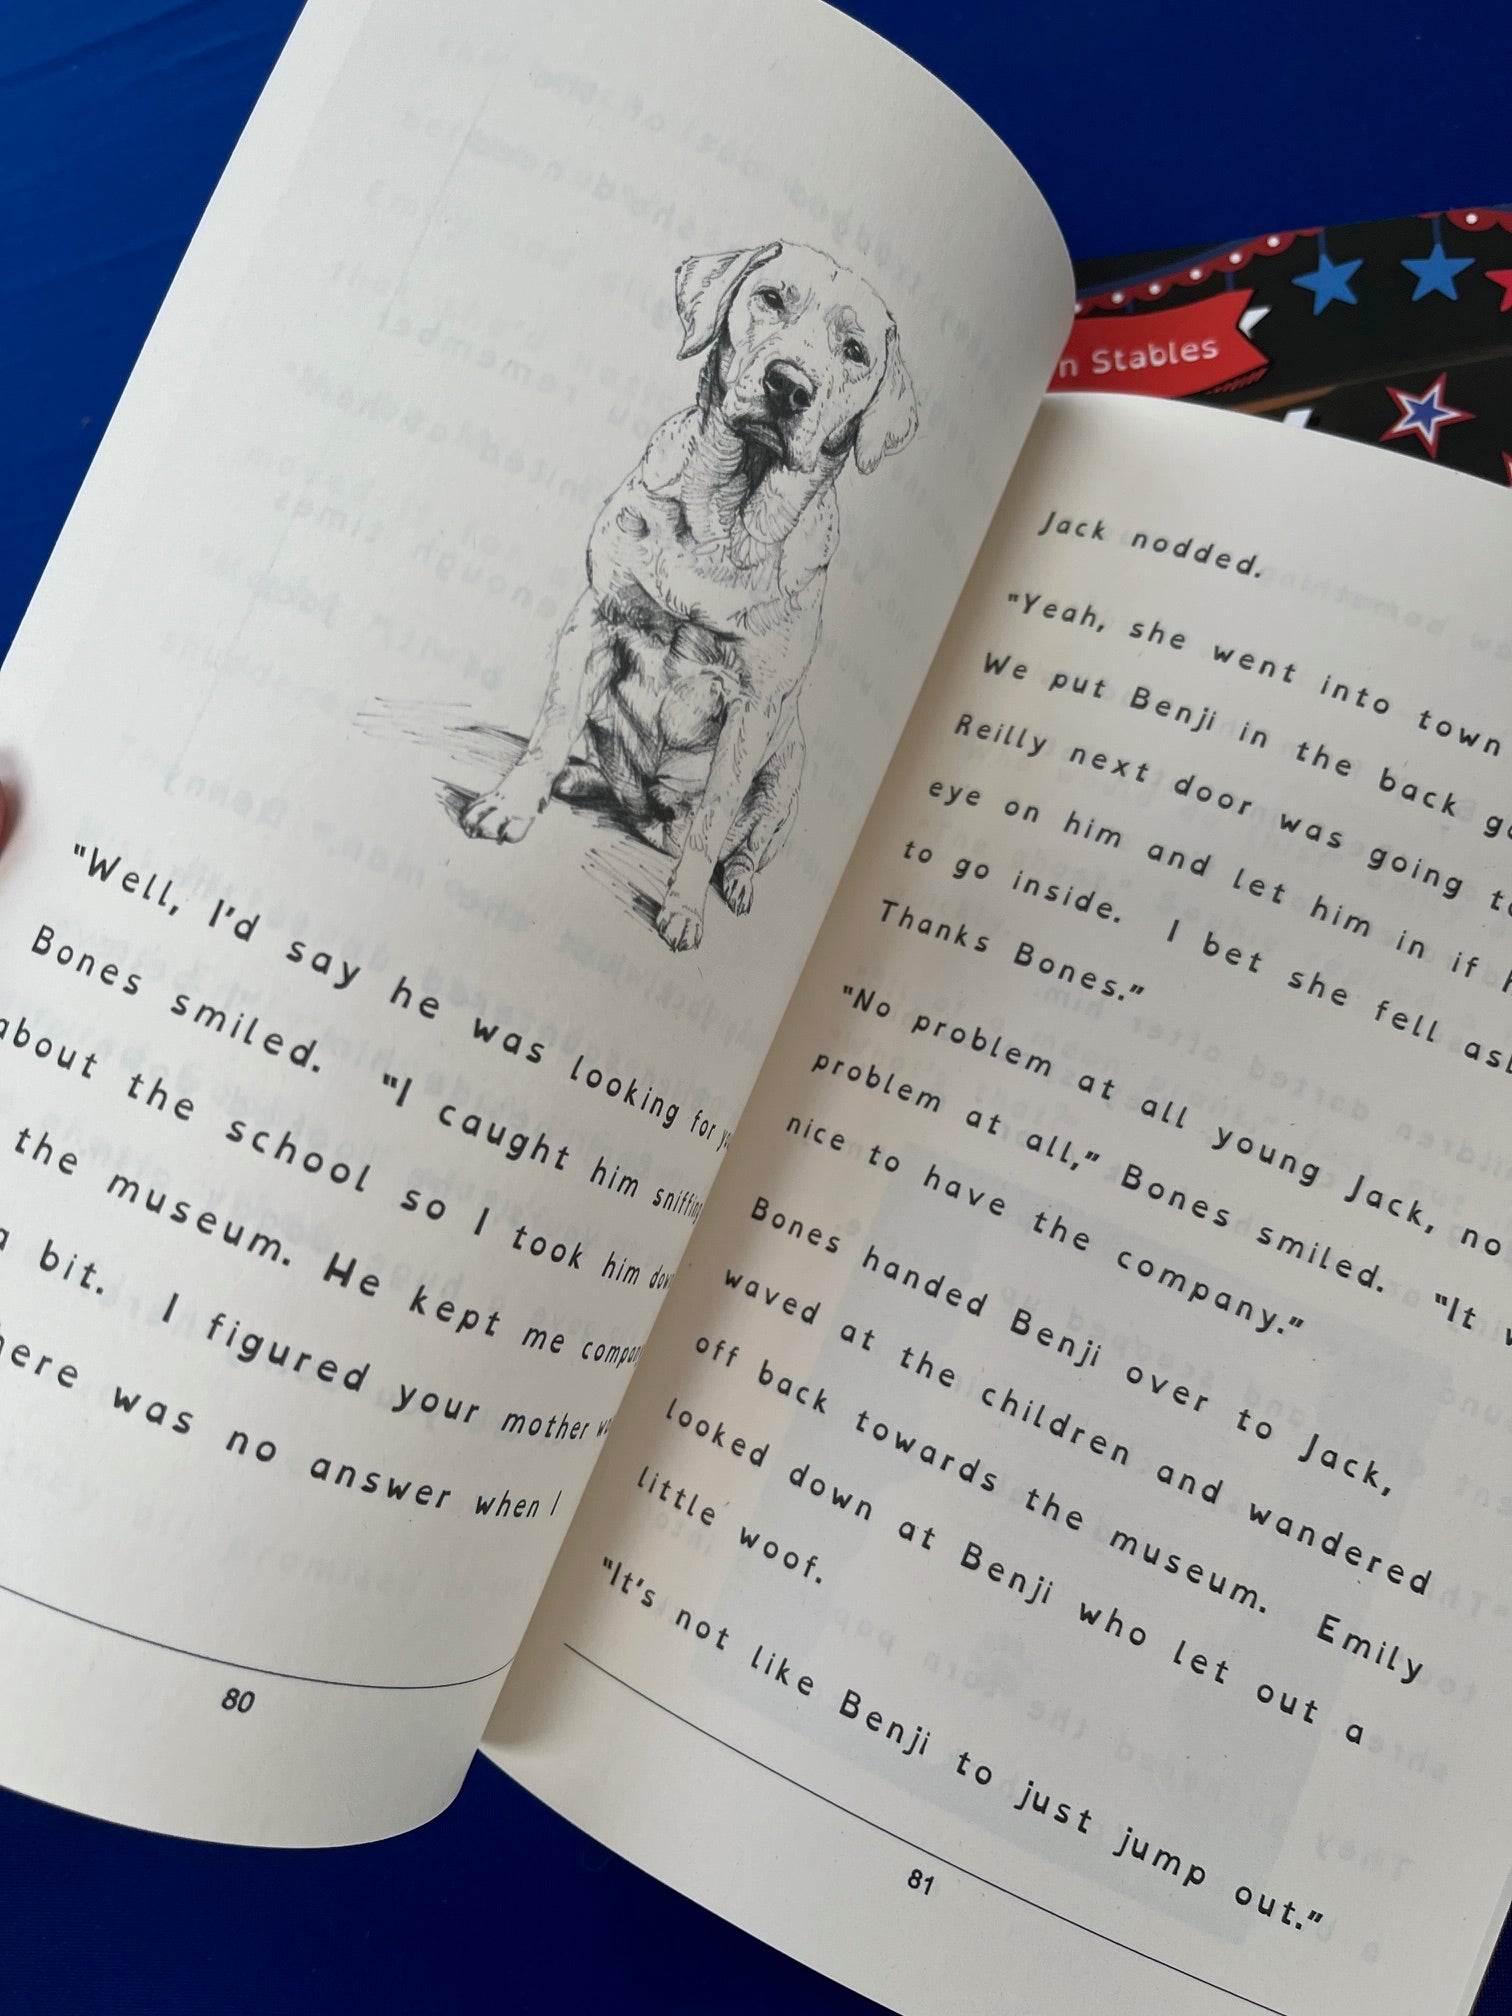 "Well, I'd say he was looking for
Bones smiled. "I caught him sniffing
about the school so I took him
the museum. He kept me
bit. I figured your mother
was no answer when I
80
n Stables
Jack nodded.
"Yeah, she went into town
We put Benji in the back
Reilly next door was going
eye on him and let him in if
to go inside. I bet she fell
Thanks Bones."
"No problem at all young Jack, no
problem at all," Bones smiled. "It
nice to have the company."
Bones handed Benji over to Jack,
waved at the children and wandered
off back towards the museum. Emily
looked down at Benji who let out a
little woof.
"It's not like Benji to just jump out."
81